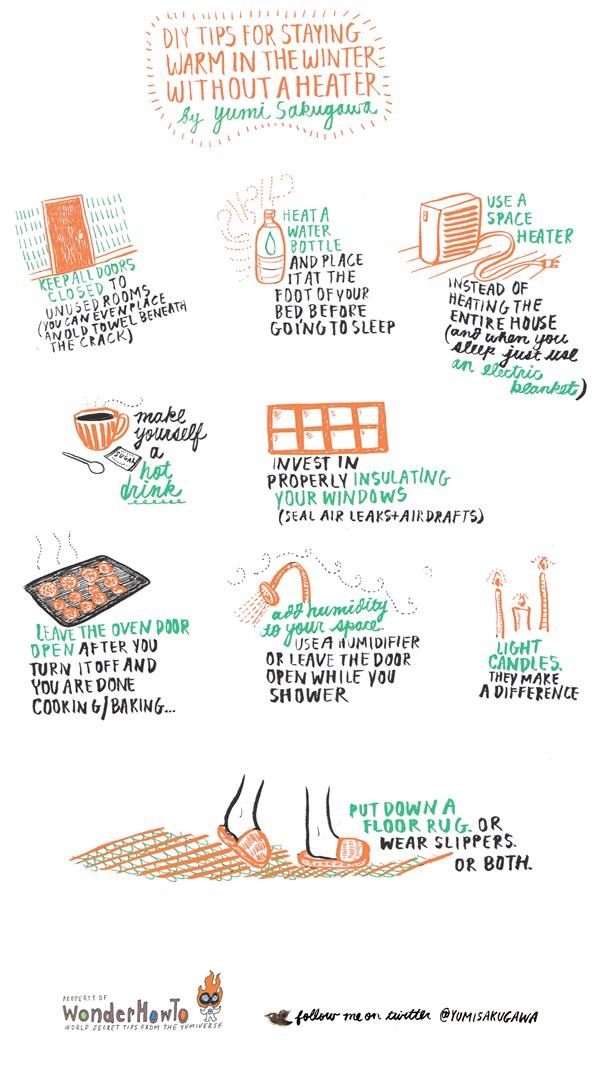 DIY TIPS FOR STAYING
WARM IN THE WINTER
WITHOUT A HEATER
by Yumi Sakugawa
KEEP ALL DOORS
CLOSED TO
UNUSED ROOMS
(YOU CAN EVEN PLACE
AN OLD TOWEL BENEATH
THE CRACK)
HEAT A
WATER
BOTTLE
AND PLACE
IT AT THE
FOOT OF YOUR
BED BEFORE
GOING TO SLEEP
USE A
SPACE
HEATER
INSTEAD OF
HEATING THE
ENTIRE HOUSE
(and when you
sleep just use
an electric
blanket)
make
yourself
a
hot
drink
SUGAR
INVEST IN
PROPERLY INSULATING
YOUR WINDOWS
(SEAL AIR LEAKS+AIRDRAFTS)
LEAVE THE OVEN DOOR
OPEN AFTER YOU
TURN IT OFF AND
YOU ARE DONE
COOKING/BAKING...
add humidity
to your space.
USE A HUMIDIFIER
OR LEAVE THE DOOR
OPEN WHILE YOU
SHOWER
LIGHT
CANDLES.
THEY MAKE
A DIFFERENCE
PUT DOWN A
FLOOR RUG. OR
WEAR SLIPPERS.
OR BOTH.
PROPERTY OF
WonderHowTo
WORLD SECRET TIPS FROM THE YUMIVERSE
follow me on twitter @YUMISAKUGAWA